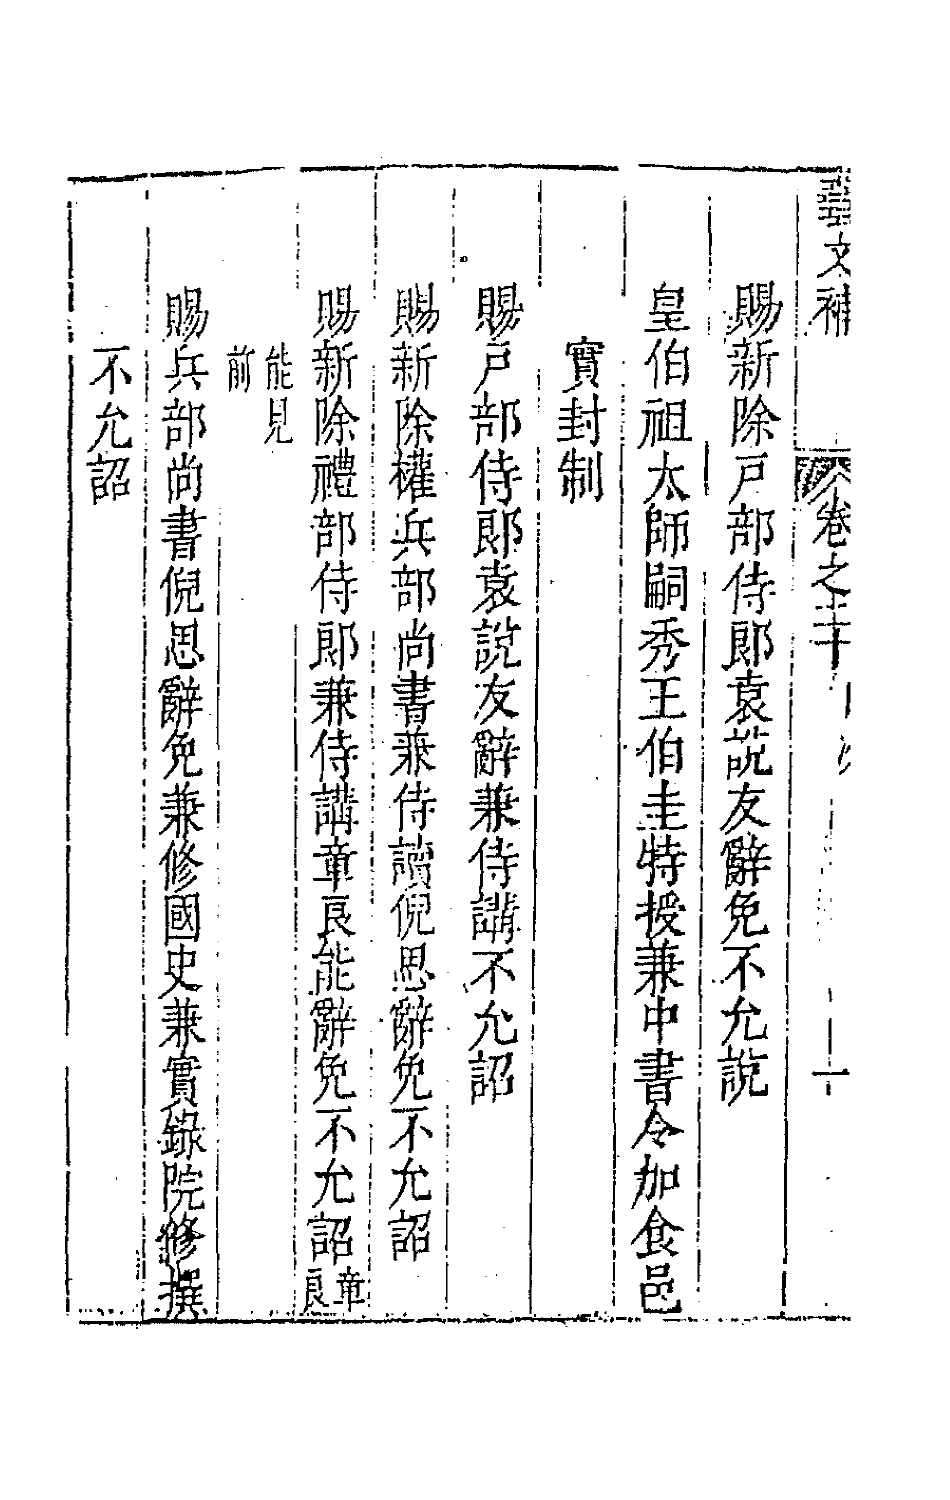 藝文補
卷之
一
賜新除戸部侍郎袁説友辭免不允説
皇伯祖太師嗣秀王伯圭特授兼中書令加食邑
實封制
賜戸部侍郎袁說友辭兼侍講不允詔
賜新除權兵部尚書兼侍讀倪思辭免不允詔
賜新除禮部侍郎兼侍講章良能辭免不允詔章良
能見前
賜兵部尚書倪思辭免兼修國史兼實錄院修撰
不允詔